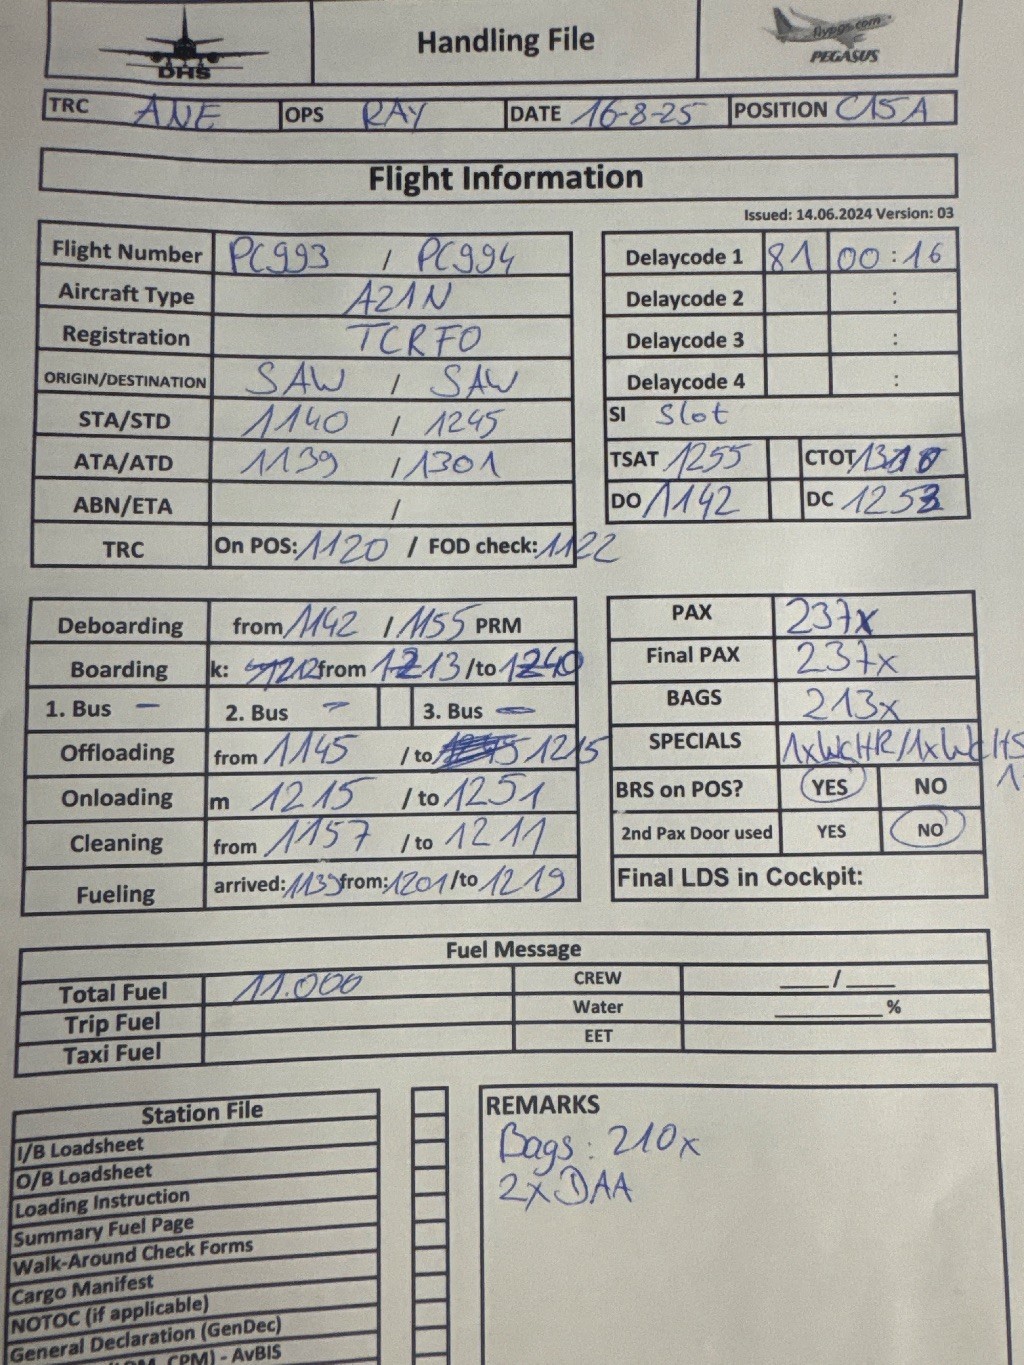 DHS
Handling File
flypgs.com
PEGASUS
TRC ANE OPS RAY DATE 16-8-25 POSITION C15A
Flight Information
Issued: 14.06.2024 Version: 03
Flight Number PC993 / PC994
Aircraft Type A21N
Registration TCRFO
ORIGIN/DESTINATION SAW / SAW
STA/STD 1140 / 1245
ATA/ATD 1139 / 1301
ABN/ETA /
TRC On POS: 1120 / FOD check: 1122
Delaycode 1 81 00:16
Delaycode 2 :
Delaycode 3 :
Delaycode 4 :
SI Slot
TSAT 1255 CTOT
DO 1142 DC 1253
Deboarding from 1142 / 1155 PRM
Boarding k: 1212 from 1213 /to 1240
1. Bus – 2. Bus – 3. Bus –
Offloading from 1145 / to 1215
Onloading m 1215 / to 1251
Cleaning from 1157 / to 1211
Fueling arrived: 1139 from: 1201 /to 1219
PAX 237x
Final PAX 237x
BAGS 213x
SPECIALS 1xWCHR/1xWCHS
BRS on POS? YES NO
2nd Pax Door used YES NO
Final LDS in Cockpit:
Fuel Message
Total Fuel 11.000 CREW ____/____
Trip Fuel Water _________%
Taxi Fuel EET
Station File
I/B Loadsheet
O/B Loadsheet
Loading Instruction
Summary Fuel Page
Walk-Around Check Forms
Cargo Manifest
NOTOC (if applicable)
General Declaration (GenDec)
CPM) - AvBIS
REMARKS
Bags: 210x
2x DAA